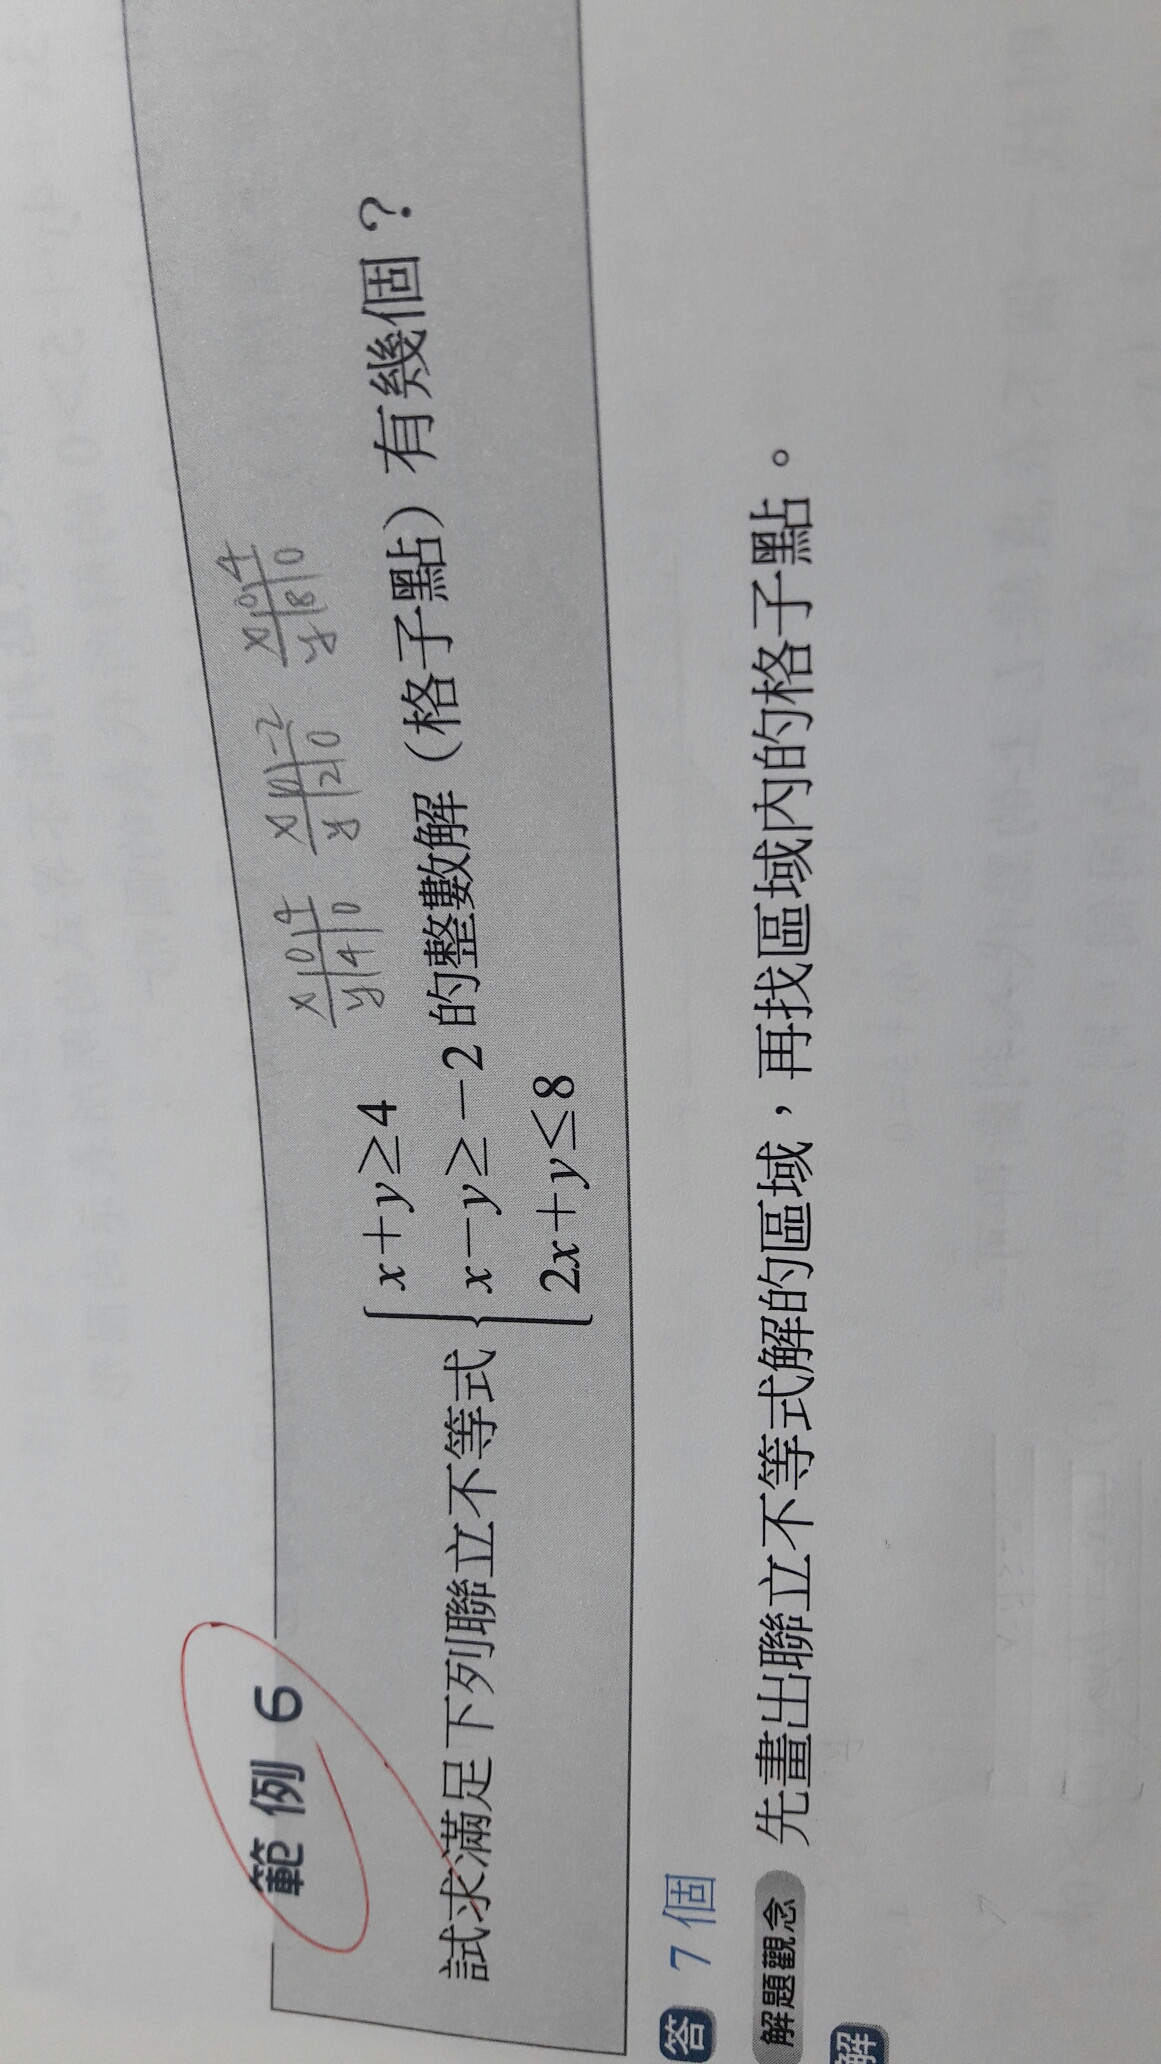 範例 6
x 0 4　x 0 -2　x 0 4
y 4 0　y 2 0　y 8 0
x+y≥4
試求滿足下列聯立不等式 x-y≥-2 的整數解（格子點）有幾個？
2x+y≤8
答 7 個
解題觀念 先畫出聯立不等式解的區域，再找區域內的格子點。
解